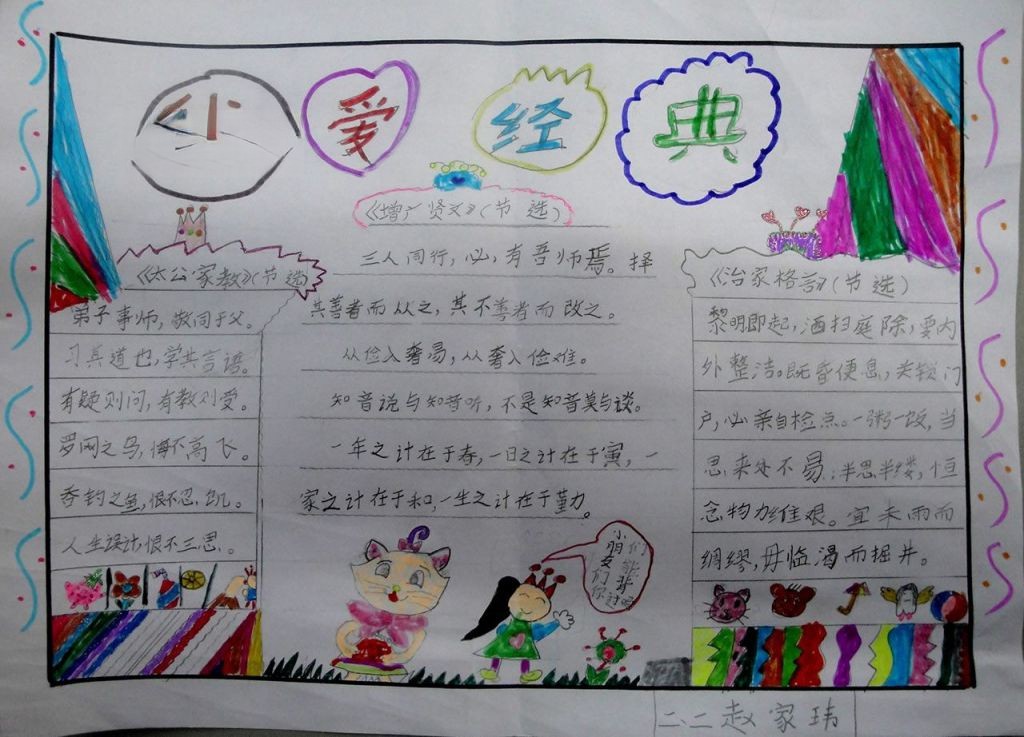 爱 经 典
《增广贤文》（节选）
三人同行，必有吾师焉。择
其善者而从之，其不善者而改之。
从俭入奢易，从奢入俭难。
知音说与知音听，不是知音莫与谈。
一年之计在于春，一日之计在于寅，一
家之计在于和，一生之计在于勤。
《太公家教》（节选）
弟子事师，敬同于父。
习其道也，学其言语。
有疑则问，有教则受。
罗网之鸟，悔不高飞。
吞钩之鱼，恨不忍饥。
人生误计，恨不三思。
《治家格言》（节选）
黎明即起，洒扫庭除，要内
外整洁。既昏便息，关锁门
户，必亲自检点。一粥一饭，当
思来处不易；半思半缕，恒
念物力维艰。宜未雨而
绸缪，毋临渴而掘井。
小朋友们你
们能背过吗
二、二赵家玮